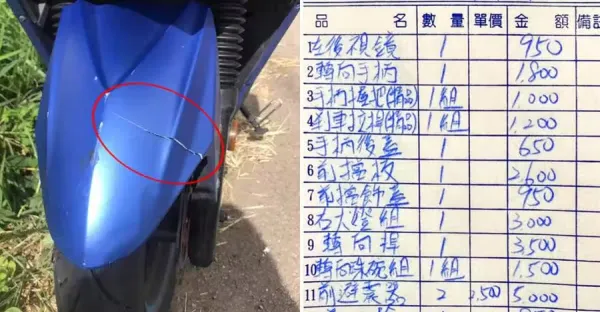 品 名 數量 單價 金額 備註
1左後視鏡 1 950
2轉向手柄 1 1.800
3手柄握把(精品) 1組 1,000
4剎車拉捍(精品) 1組 1.200
5手柄後蓋 1 650
6前擋板 1 2,600
7前擋飾蓋 1 950
8右大燈組 1 3000
9轉向捍 1 3,500
10轉向珠碗組 1組 1.500
11前避震器 2 2,500 5,000